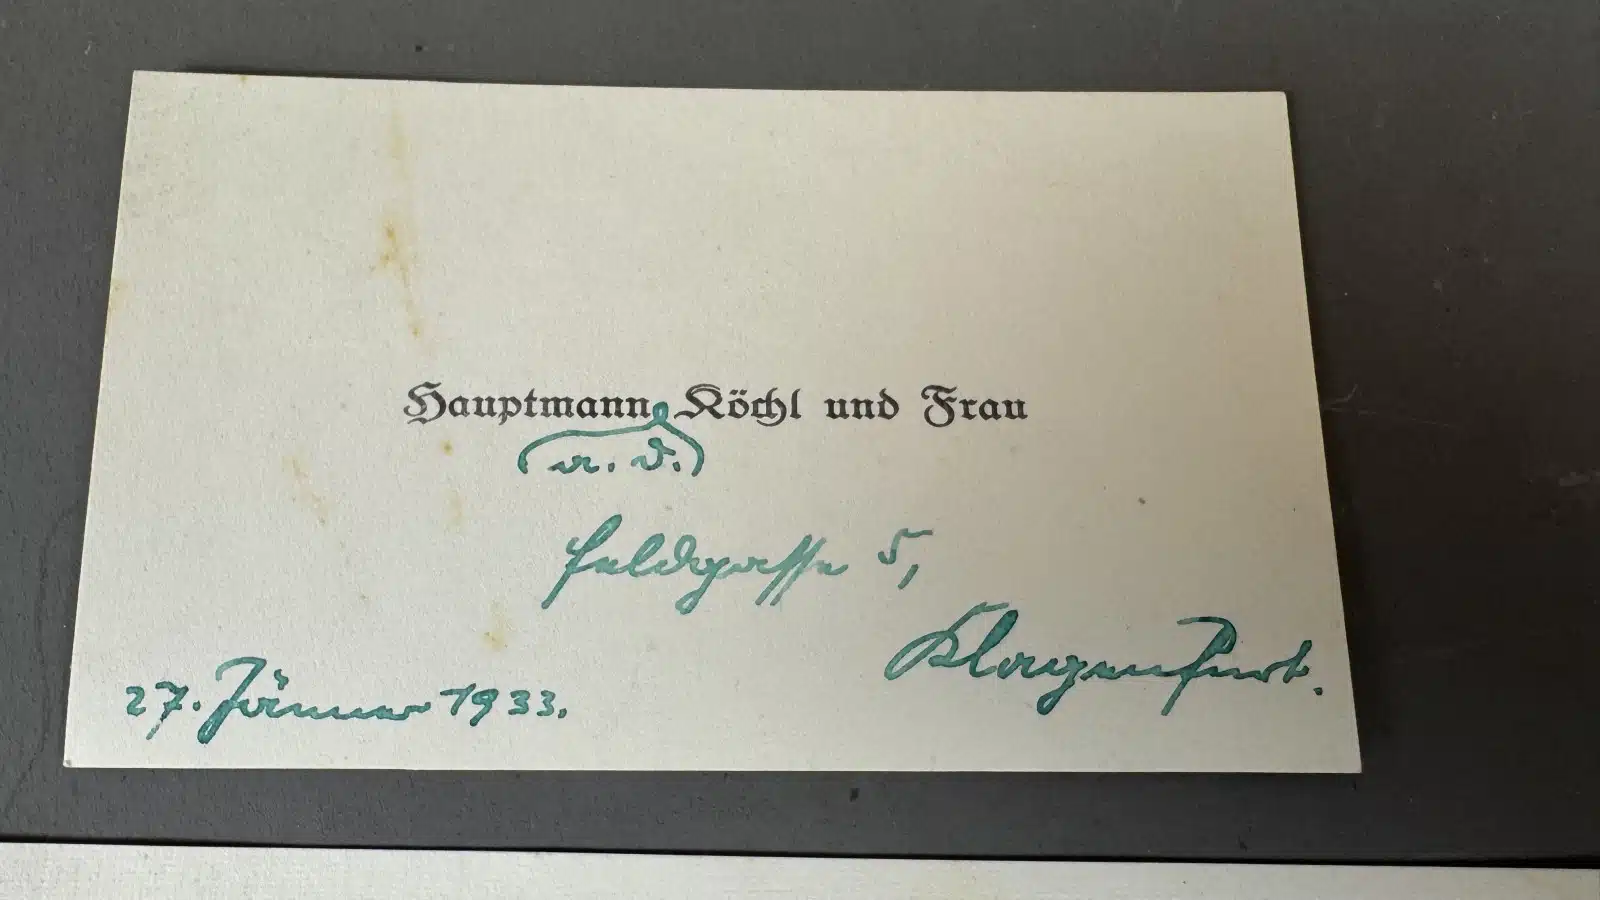 Hauptmann Köchl und Frau
(a. D.)
Feldgasse 5,
Klagenfurt.
27. Jänner 1933.